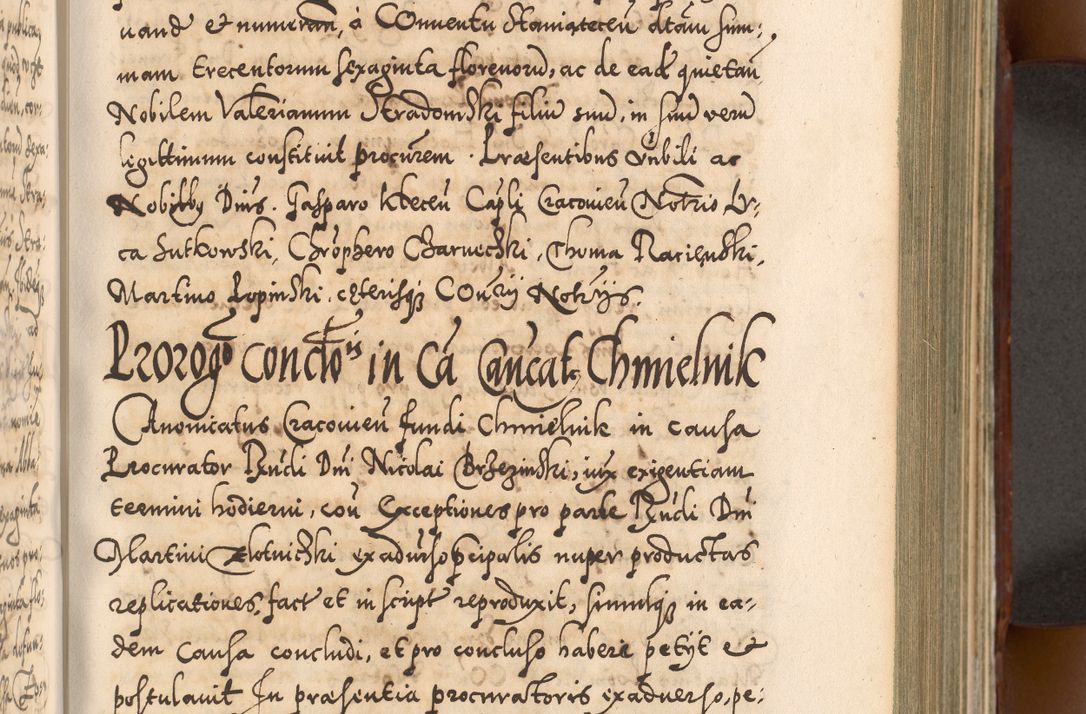 uand et numeratam, à Conventu Staniątecen datam sum-
mam trecentorum sexaginta florenorum, ac de ead quietan
Nobilem Valerianum Stradomski filium suum, in suum verum
legittimum constituit procurem. Præsentibus Vnbili ac
Nobilibus Dnis. Gasparo Ktecen Capli Cracovien Notrio Lu-
ca Sutkowski, Chrophero Czarnecki, Thoma Raciendki,
Martino Lopinski, ceterisque Conrij Notrijs.
Prorogo conclonis in Ca Cancat Chmielnik
Canonicatus Cracovien fundi Chmielnik in causa
Procurator Rndi Dni Nicolai Brzezinski, iux exigentiam
termini hodierni, con Exceptiones pro parte Rndi Dni
Martini Zlotnicki exaduerso pcipalis nuper productas
replicationes, fact et in script reproduxit, simulque in ea-
dem causa concludi, et pro concluso habere petijt et
postulauit In præsentia procuratoris exaduerso, pe-